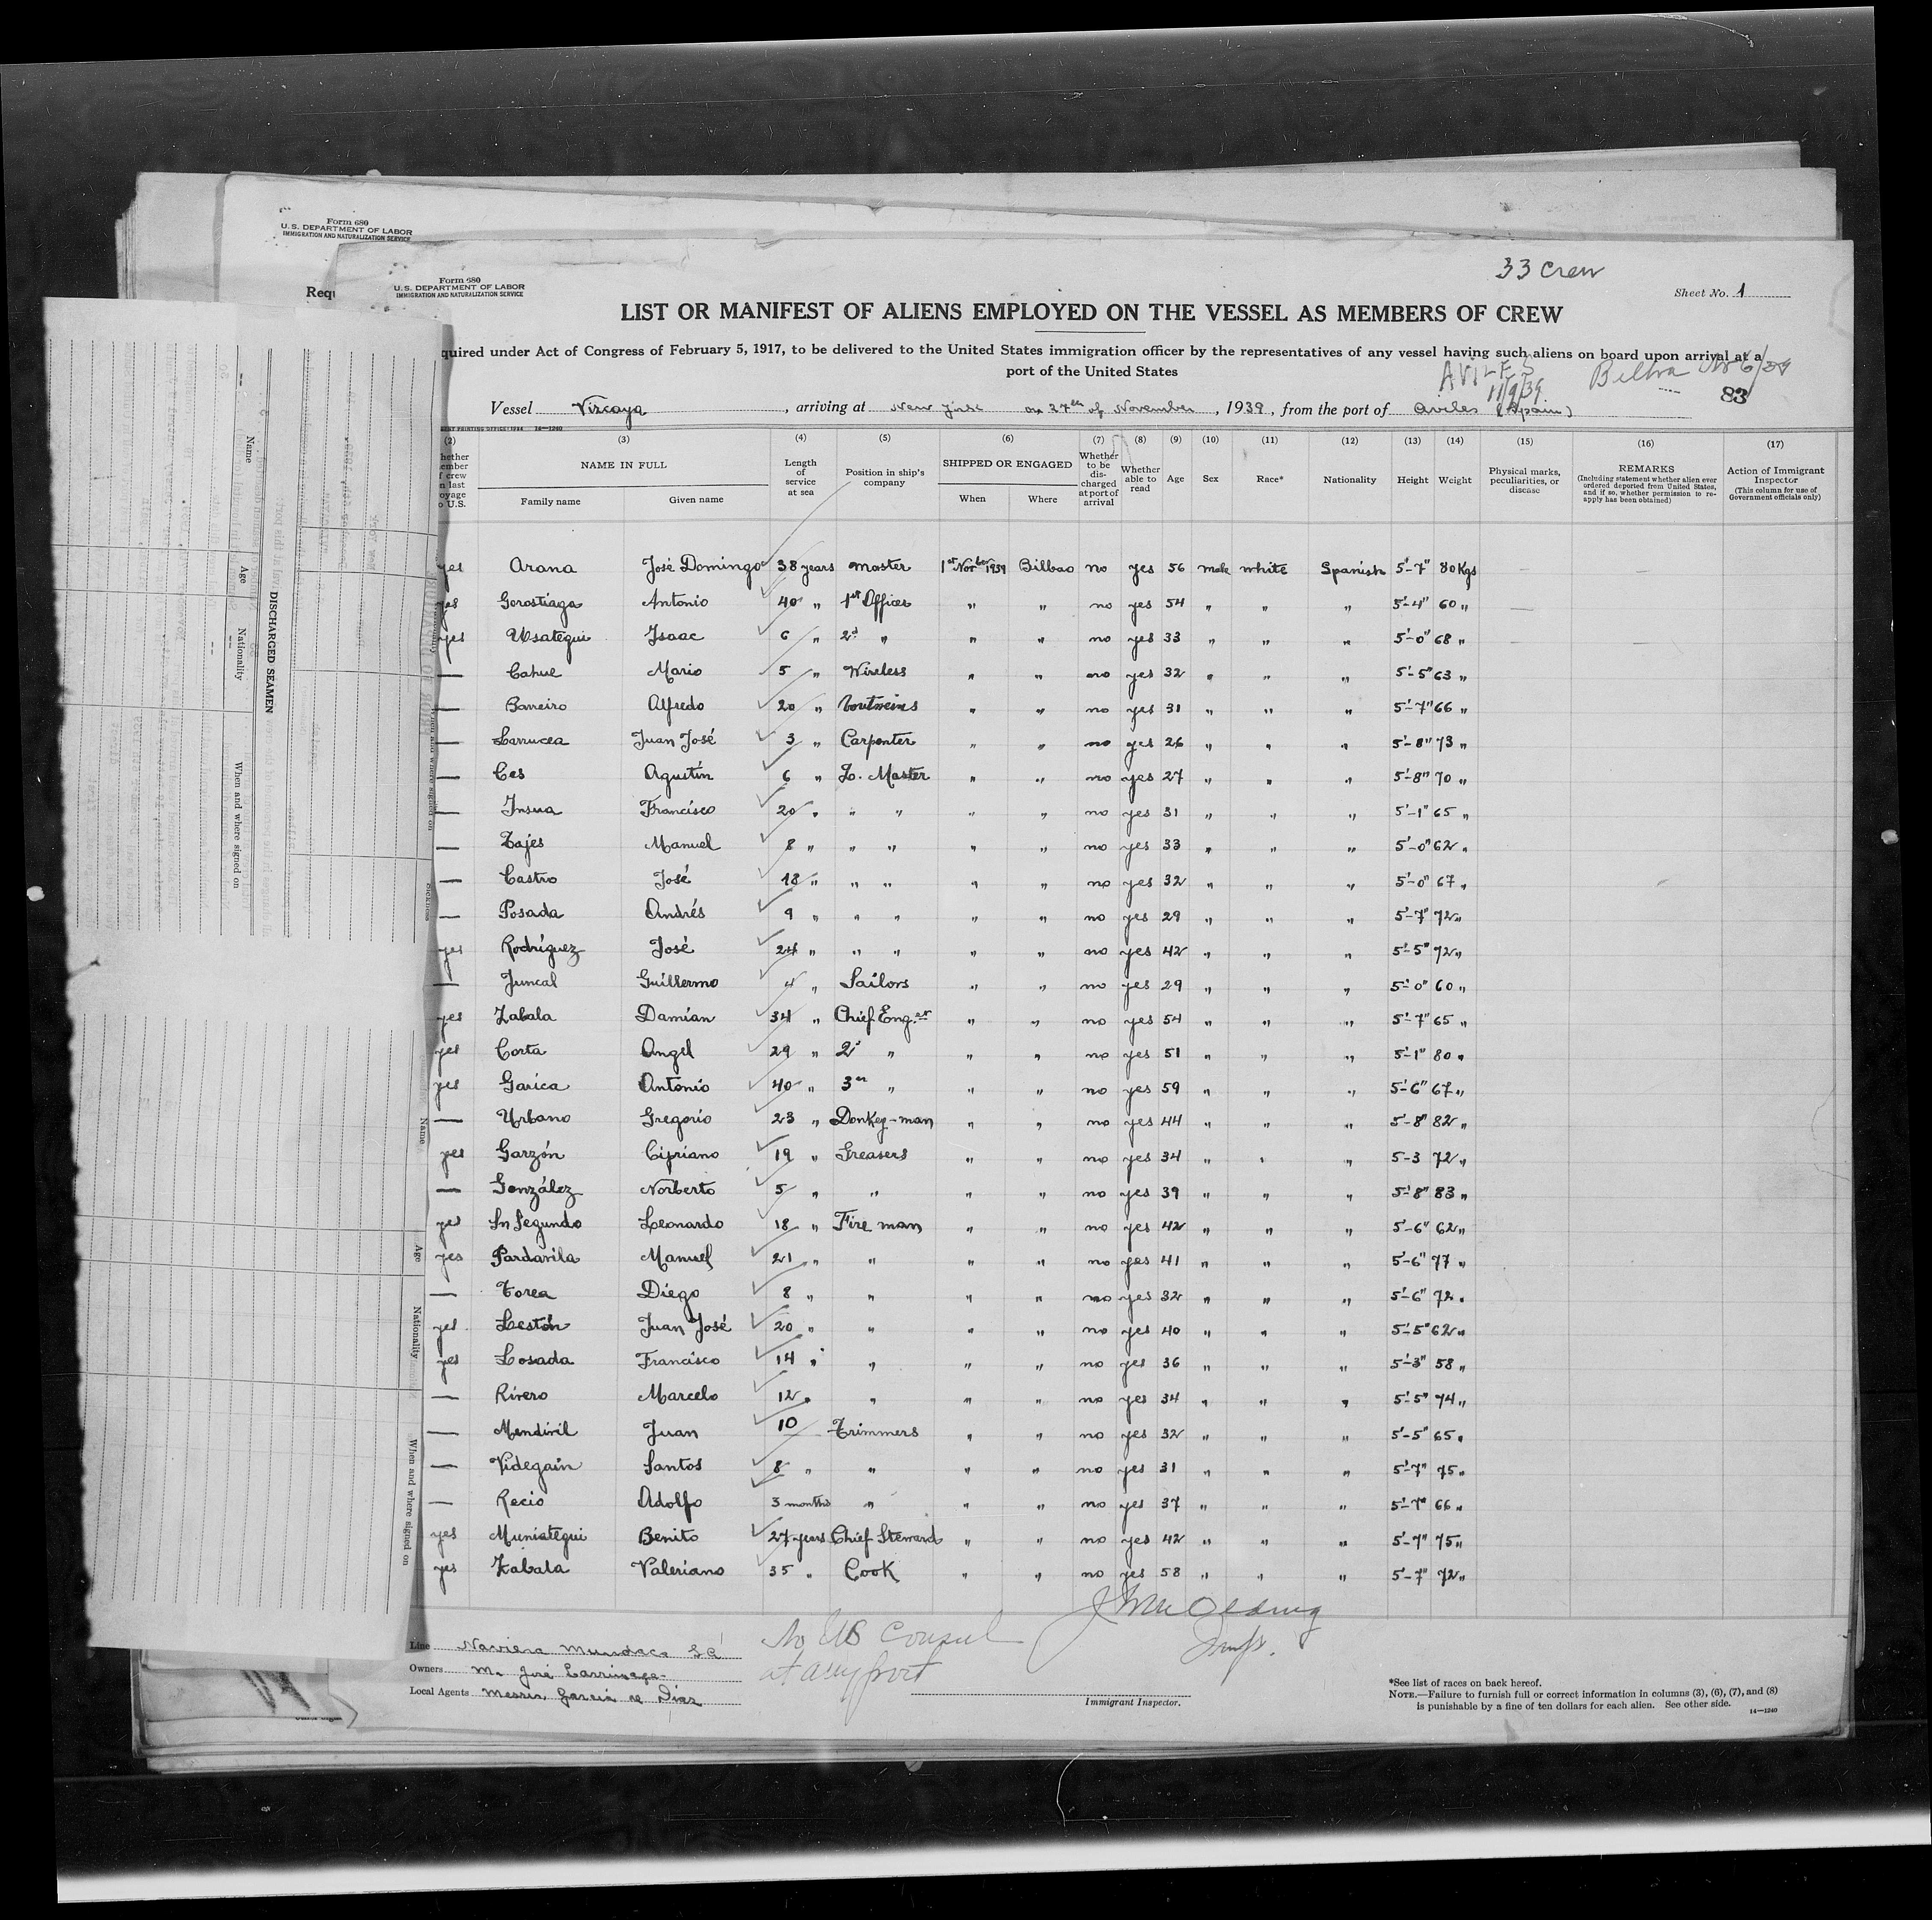 Form 680
U.S. DEPARTMENT OF LABOR
IMMIGRATION AND NATURALIZATION SERVICE
Requ
Form 680
U.S. DEPARTMENT OF LABOR
IMMIGRATION AND NATURALIZATION SERVICE
33 Crew
Sheet No. 1
LIST OR MANIFEST OF ALIENS EMPLOYED ON THE VESSEL AS MEMBERS OF CREW
quired under Act of Congress of February 5, 1917, to be delivered to the United States immigration officer by the representatives of any vessel having such aliens on board upon arrival at a
port of the United States
AVILES
11/9/39
83
Vessel Vizcaya, arriving at New York on 27th of November, 1939, from the port of Aviles (Spain)
(2) (3) (4) (5) (6) (7) (8) (9) (10) (11) (12) (13) (14) (15) (16) (17)
NAME IN FULL
Family name Given name
Length of service at sea
Position in ship's company
SHIPPED OR ENGAGED
When Where
Whether to be discharged at port of arrival
Whether able to read
Age Sex Race* Nationality Height Weight
Physical marks, peculiarities, or disease
REMARKS
(Including statement whether alien ever ordered deported from United States, and if so, whether permission to reapply has been obtained)
Action of Immigrant Inspector
(This column for use of Government officials only)
yes Arana José Domingo 38 years master 1st Novbre 1939 Bilbao no yes 56 male white Spanish 5'-7" 80 Kgs
yes Gorostiaga Antonio 40 " 1st Officer " " no yes 54 " " " 5'-4" 60 "
yes Usategui Isaac 6 " 2d " " " no yes 33 " " " 5'-0" 68 "
— Cahue Mario 5 " Wireless " " no yes 32 " " " 5'-5" 63 "
— Barreiro Alfredo 20 " " " no yes 31 " " " 5'-7" 66 "
— Larrucea Juan José 3 " Carpenter " " no yes 26 " " " 5'-8" 73 "
— Ces Agustín 6 " Master " " no yes 27 " " " 5'-8" 70 "
— Insua Francisco 20 " " " " " no yes 31 " " " 5'-1" 65 "
— Tajes Manuel 8 " " " " " no yes 33 " " " 5'-0" 62 "
— Castro José 18 " " " " " no yes 32 " " " 5'-0" 67 "
— Posada Andrés 9 " " " " " no yes 29 " " " 5'-7" 72 "
yes Rodríguez José 24 " " " " " no yes 42 " " " 5'-5" 72 "
— Juncal Guillermo 4 " Sailors " " no yes 29 " " " 5'-0" 60 "
yes Zabala Damián 34 " Chief Eng.er " " no yes 54 " " " 5'-7" 65 "
yes Corta Angel 29 " 2d " " " no yes 51 " " " 5'-1" 80 "
yes Garica Antonio 40 " 3er " " " no yes 59 " " " 5'-6" 67 "
— Urbano Gregorio 23 " Donkey-man " " no yes 44 " " " 5'-8" 82 "
yes Garzón Cipriano 19 " Greasers " " no yes 34 " " " 5-3 72 "
— González Norberto 5 " " " " no yes 39 " " " 5'-8" 83 "
yes Sn Segundo Leonardo 18 " Fire man " " no yes 42 " " " 5'-6" 62 "
yes Pardavila Manuel 21 " " " " no yes 41 " " " 5'-6" 77 "
— Torea Diego 8 " " " " no yes 32 " " " 5'-6" 72 "
yes Lestón Juan José 20 " " " " no yes 40 " " " 5'-5" 62 "
yes Losada Francisco 14 " " " " no yes 36 " " " 5'-3" 58 "
— Rivero Marcelo 12 " " " " no yes 34 " " " 5'-5" 74 "
— Mendivil Juan 10 Trimmers " " no yes 32 " " " 5'-5" 65 "
— Videgain Santos 8 " " " " no yes 31 " " " 5'-7" 75 "
— Recio Adolfo 3 months " " " no yes 37 " " " 5'-7" 66 "
yes Muniategui Benito 27 years Chief Steward " " no yes 42 " " " 5'-7" 75 "
yes Zabala Valeriano 35 " Cook " " no yes 58 " " " 5'-7" 72 "
Line Naviera Mundaca S A
Owners M. José Larrinaga
Local Agents Messrs Garcia & Diaz
No US Consul
at any port
Insp.
Immigrant Inspector.
*See list of races on back hereof.
NOTE.—Failure to furnish full or correct information in columns (3), (6), (7), and (8)
is punishable by a fine of ten dollars for each alien. See other side.
14—1240
DISCHARGED SEAMEN
Name Age Nationality When and where signed on
Name Age Nationality When and where signed on